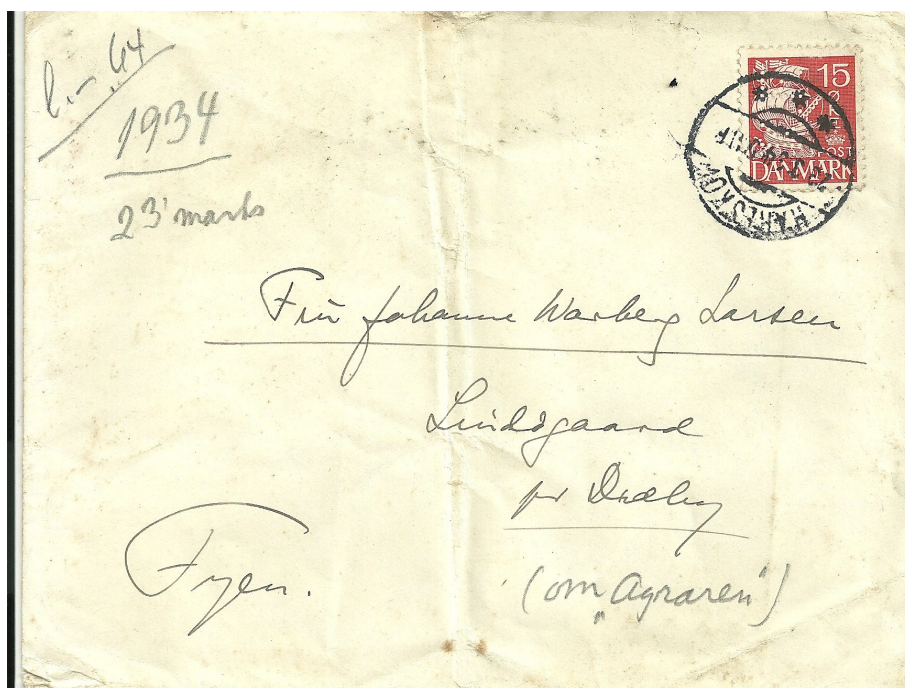 1934
23' marts
15
ØRE
POST
DANMARK
Fru Johanne Warberg Larsen
Lindøgaard
pr Dræby
Fyen.
(om „Agraren")